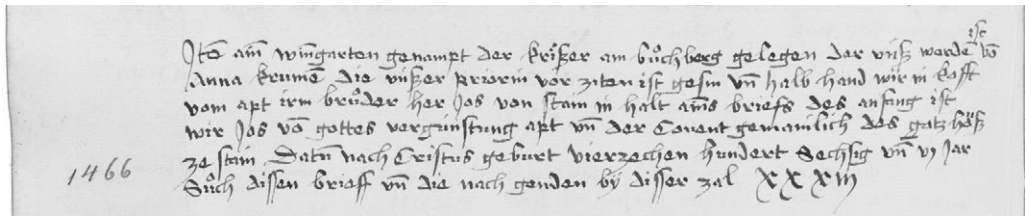 Itē ain̄ wingarten genampt der kriſzer am bůchberg gelegen der vnſz wordē ist vō
Anna krumē die vnſzer priorin vor ziten ist gesin vn̄ halb hand wir in kofft
vom apt irm brůder her Jos von stain in halt ains briefs des anfang ist
wir Jos vō gottes vergunstung apt vn̄ der Covent gemainlich des gotzhůſz
ze stain Datū nach Cristus geburt vierzechen hundert Sechsig vn̄ vj Jar
1466 Sůch dissen brieff vn̄ die nach genden bÿ disser zal XXXIII